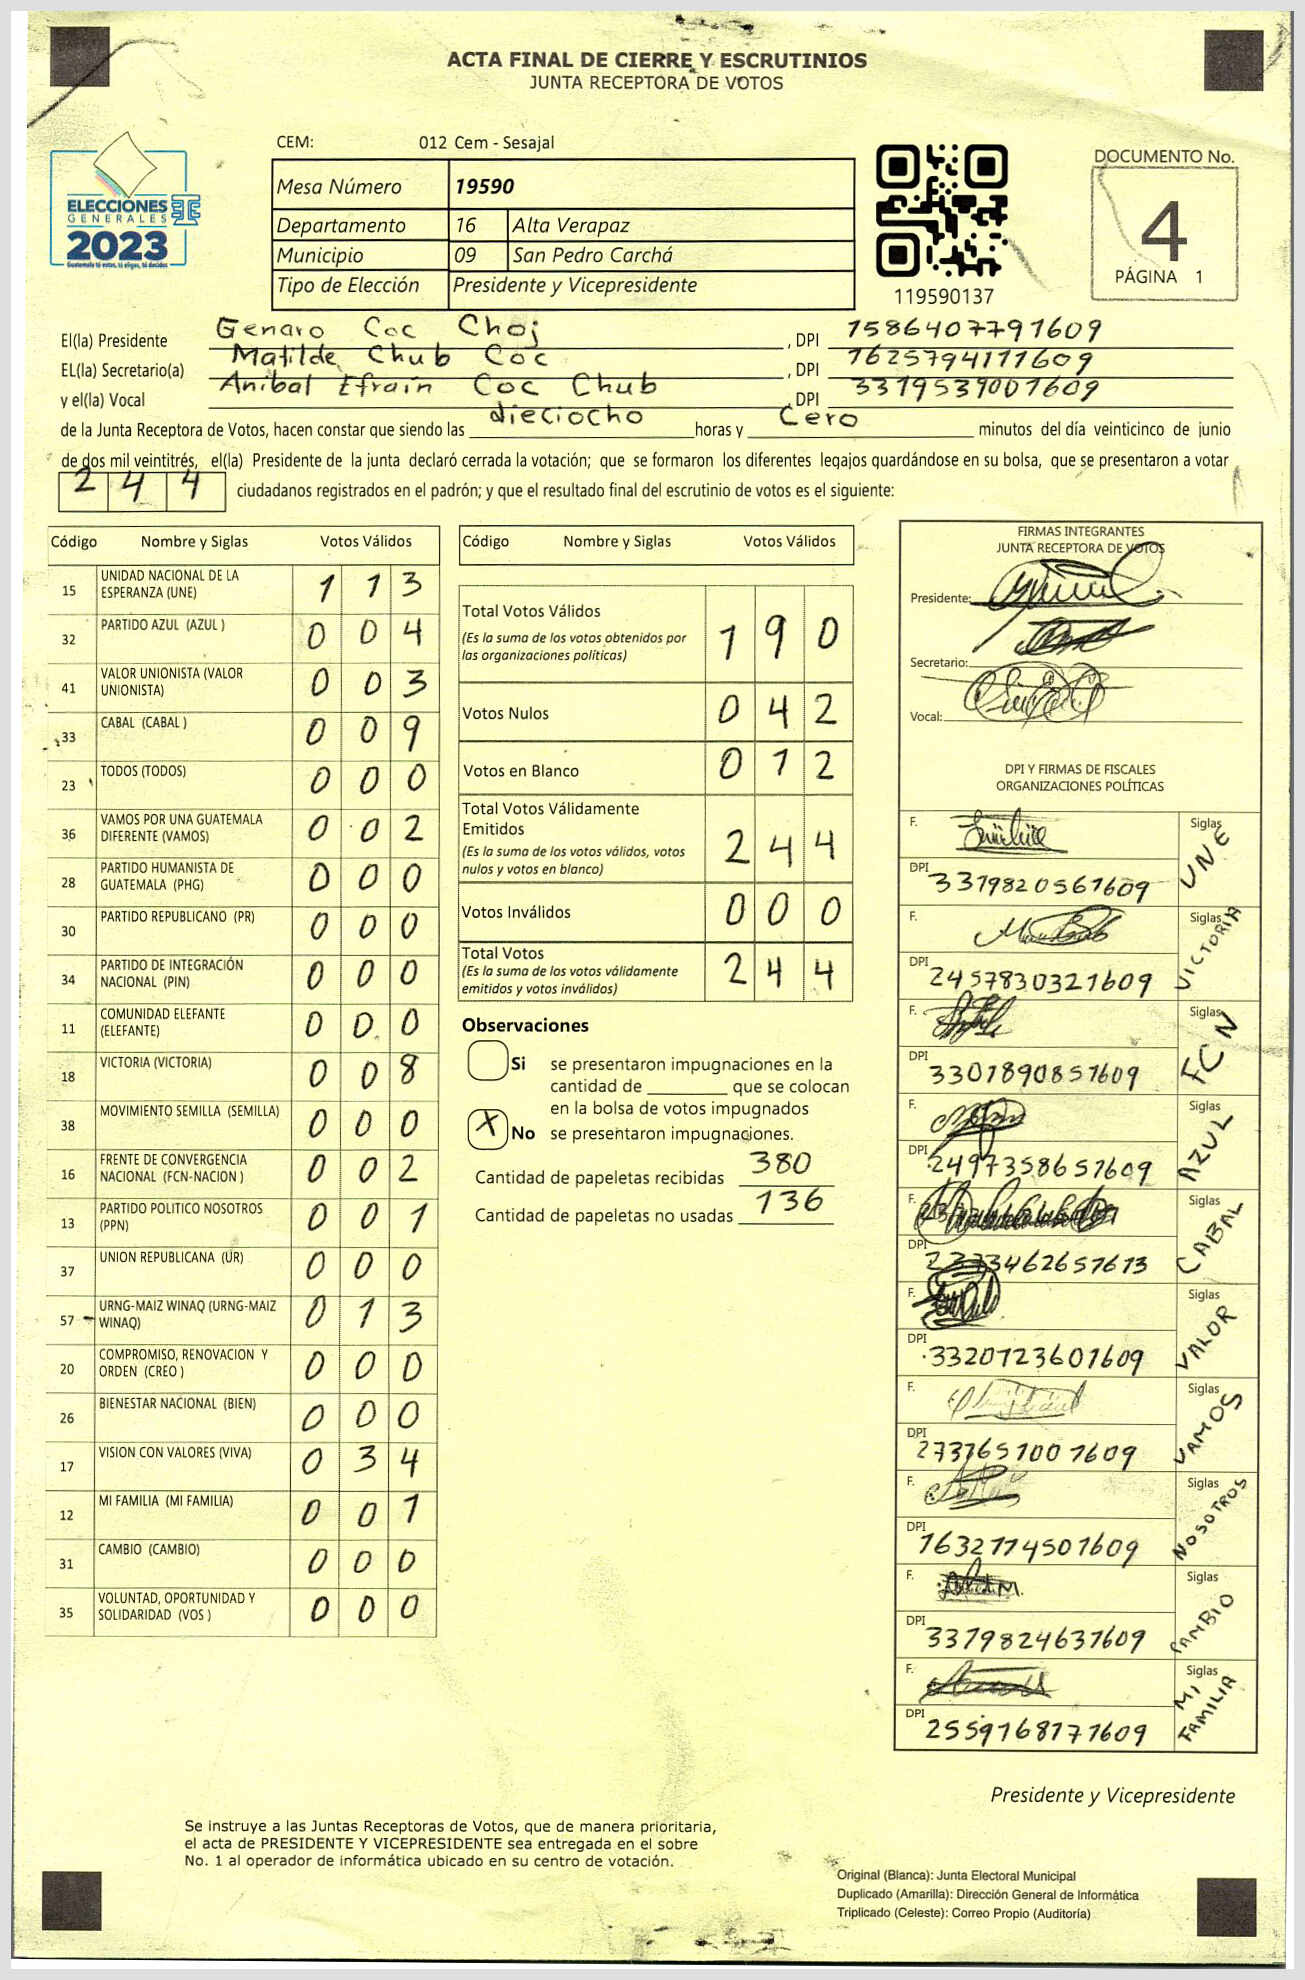 ACTA FINAL DE CIERRE Y ESCRUTINIOS
JUNTA RECEPTORA DE VOTOS
ELECCIONES
GENERALES
2023
Guatemala tú estas, tú eliges, tú decides
CEM: 012 Cem - Sesajal
Mesa Número 19590
Departamento 16 Alta Verapaz
Municipio 09 San Pedro Carchá
Tipo de Elección Presidente y Vicepresidente
119590137
DOCUMENTO No.
4
PÁGINA 1
El(la) Presidente Genaro Coc Choj , DPI 1586407791609
EL(la) Secretario(a) Matilde Chub Coc , DPI 1625794111609
y el(la) Vocal Anibal Efraín Coc Chub , DPI 3319539001609
de la Junta Receptora de Votos, hacen constar que siendo las dieciocho horas y Cero minutos del día veinticinco de junio
de dos mil veintitrés, el(la) Presidente de la junta declaró cerrada la votación; que se formaron los diferentes legajos guardándose en su bolsa, que se presentaron a votar
244 ciudadanos registrados en el padrón; y que el resultado final del escrutinio de votos es el siguiente:
Código Nombre y Siglas Votos Válidos
15 UNIDAD NACIONAL DE LA ESPERANZA (UNE) 1 1 3
32 PARTIDO AZUL (AZUL ) 0 0 4
41 VALOR UNIONISTA (VALOR UNIONISTA) 0 0 3
33 CABAL (CABAL ) 0 0 9
23 TODOS (TODOS) 0 0 0
36 VAMOS POR UNA GUATEMALA DIFERENTE (VAMOS) 0 0 2
28 PARTIDO HUMANISTA DE GUATEMALA (PHG) 0 0 0
30 PARTIDO REPUBLICANO (PR) 0 0 0
34 PARTIDO DE INTEGRACIÓN NACIONAL (PIN) 0 0 0
11 COMUNIDAD ELEFANTE (ELEFANTE) 0 0 0
18 VICTORIA (VICTORIA) 0 0 8
38 MOVIMIENTO SEMILLA (SEMILLA) 0 0 0
16 FRENTE DE CONVERGENCIA NACIONAL (FCN-NACION ) 0 0 2
13 PARTIDO POLITICO NOSOTROS (PPN) 0 0 1
37 UNION REPUBLICANA (UR) 0 0 0
57 URNG-MAIZ WINAQ (URNG-MAIZ WINAQ) 0 1 3
20 COMPROMISO, RENOVACION Y ORDEN (CREO ) 0 0 0
26 BIENESTAR NACIONAL (BIEN) 0 0 0
17 VISION CON VALORES (VIVA) 0 3 4
12 MI FAMILIA (MI FAMILIA) 0 0 1
31 CAMBIO (CAMBIO) 0 0 0
35 VOLUNTAD, OPORTUNIDAD Y SOLIDARIDAD (VOS ) 0 0 0
Código Nombre y Siglas Votos Válidos
Total Votos Válidos 1 9 0
(Es la suma de los votos obtenidos por
las organizaciones políticas)
Votos Nulos 0 4 2
Votos en Blanco 0 1 2
Total Votos Válidamente
Emitidos 2 4 4
(Es la suma de los votos válidos, votos
nulos y votos en blanco)
Votos Inválidos 0 0 0
Total Votos 2 4 4
(Es la suma de los votos válidamente
emitidos y votos inválidos)
Observaciones
Si se presentaron impugnaciones en la
cantidad de que se colocan
en la bolsa de votos impugnados
X No se presentaron impugnaciones.
Cantidad de papeletas recibidas 380
Cantidad de papeletas no usadas 136
FIRMAS INTEGRANTES
JUNTA RECEPTORA DE VOTOS
Presidente:
Secretario:
Vocal:
DPI Y FIRMAS DE FISCALES
ORGANIZACIONES POLÍTICAS
F. Siglas UNE
DPI 3319820561609
F. Siglas VICTORIA
DPI 2457830321609
F. Siglas FCN
DPI 3301890851609
F. Siglas AZUL
DPI 2497358651609
F. Siglas CABAL
DPI 2373462651613
F. Siglas VALOR
DPI 3320123601609
F. Siglas VAMOS
DPI 2737651001609
F. Siglas NOSOTROS
DPI 1632114501609
F. Siglas CAMBIO
DPI 3379824631609
F. Siglas MI FAMILIA
DPI 2559168171609
Presidente y Vicepresidente
Se instruye a las Juntas Receptoras de Votos, que de manera prioritaria,
el acta de PRESIDENTE Y VICEPRESIDENTE sea entregada en el sobre
No. 1 al operador de informática ubicado en su centro de votación.
Original (Blanca): Junta Electoral Municipal
Duplicado (Amarilla): Dirección General de Informática
Triplicado (Celeste): Correo Propio (Auditoría)